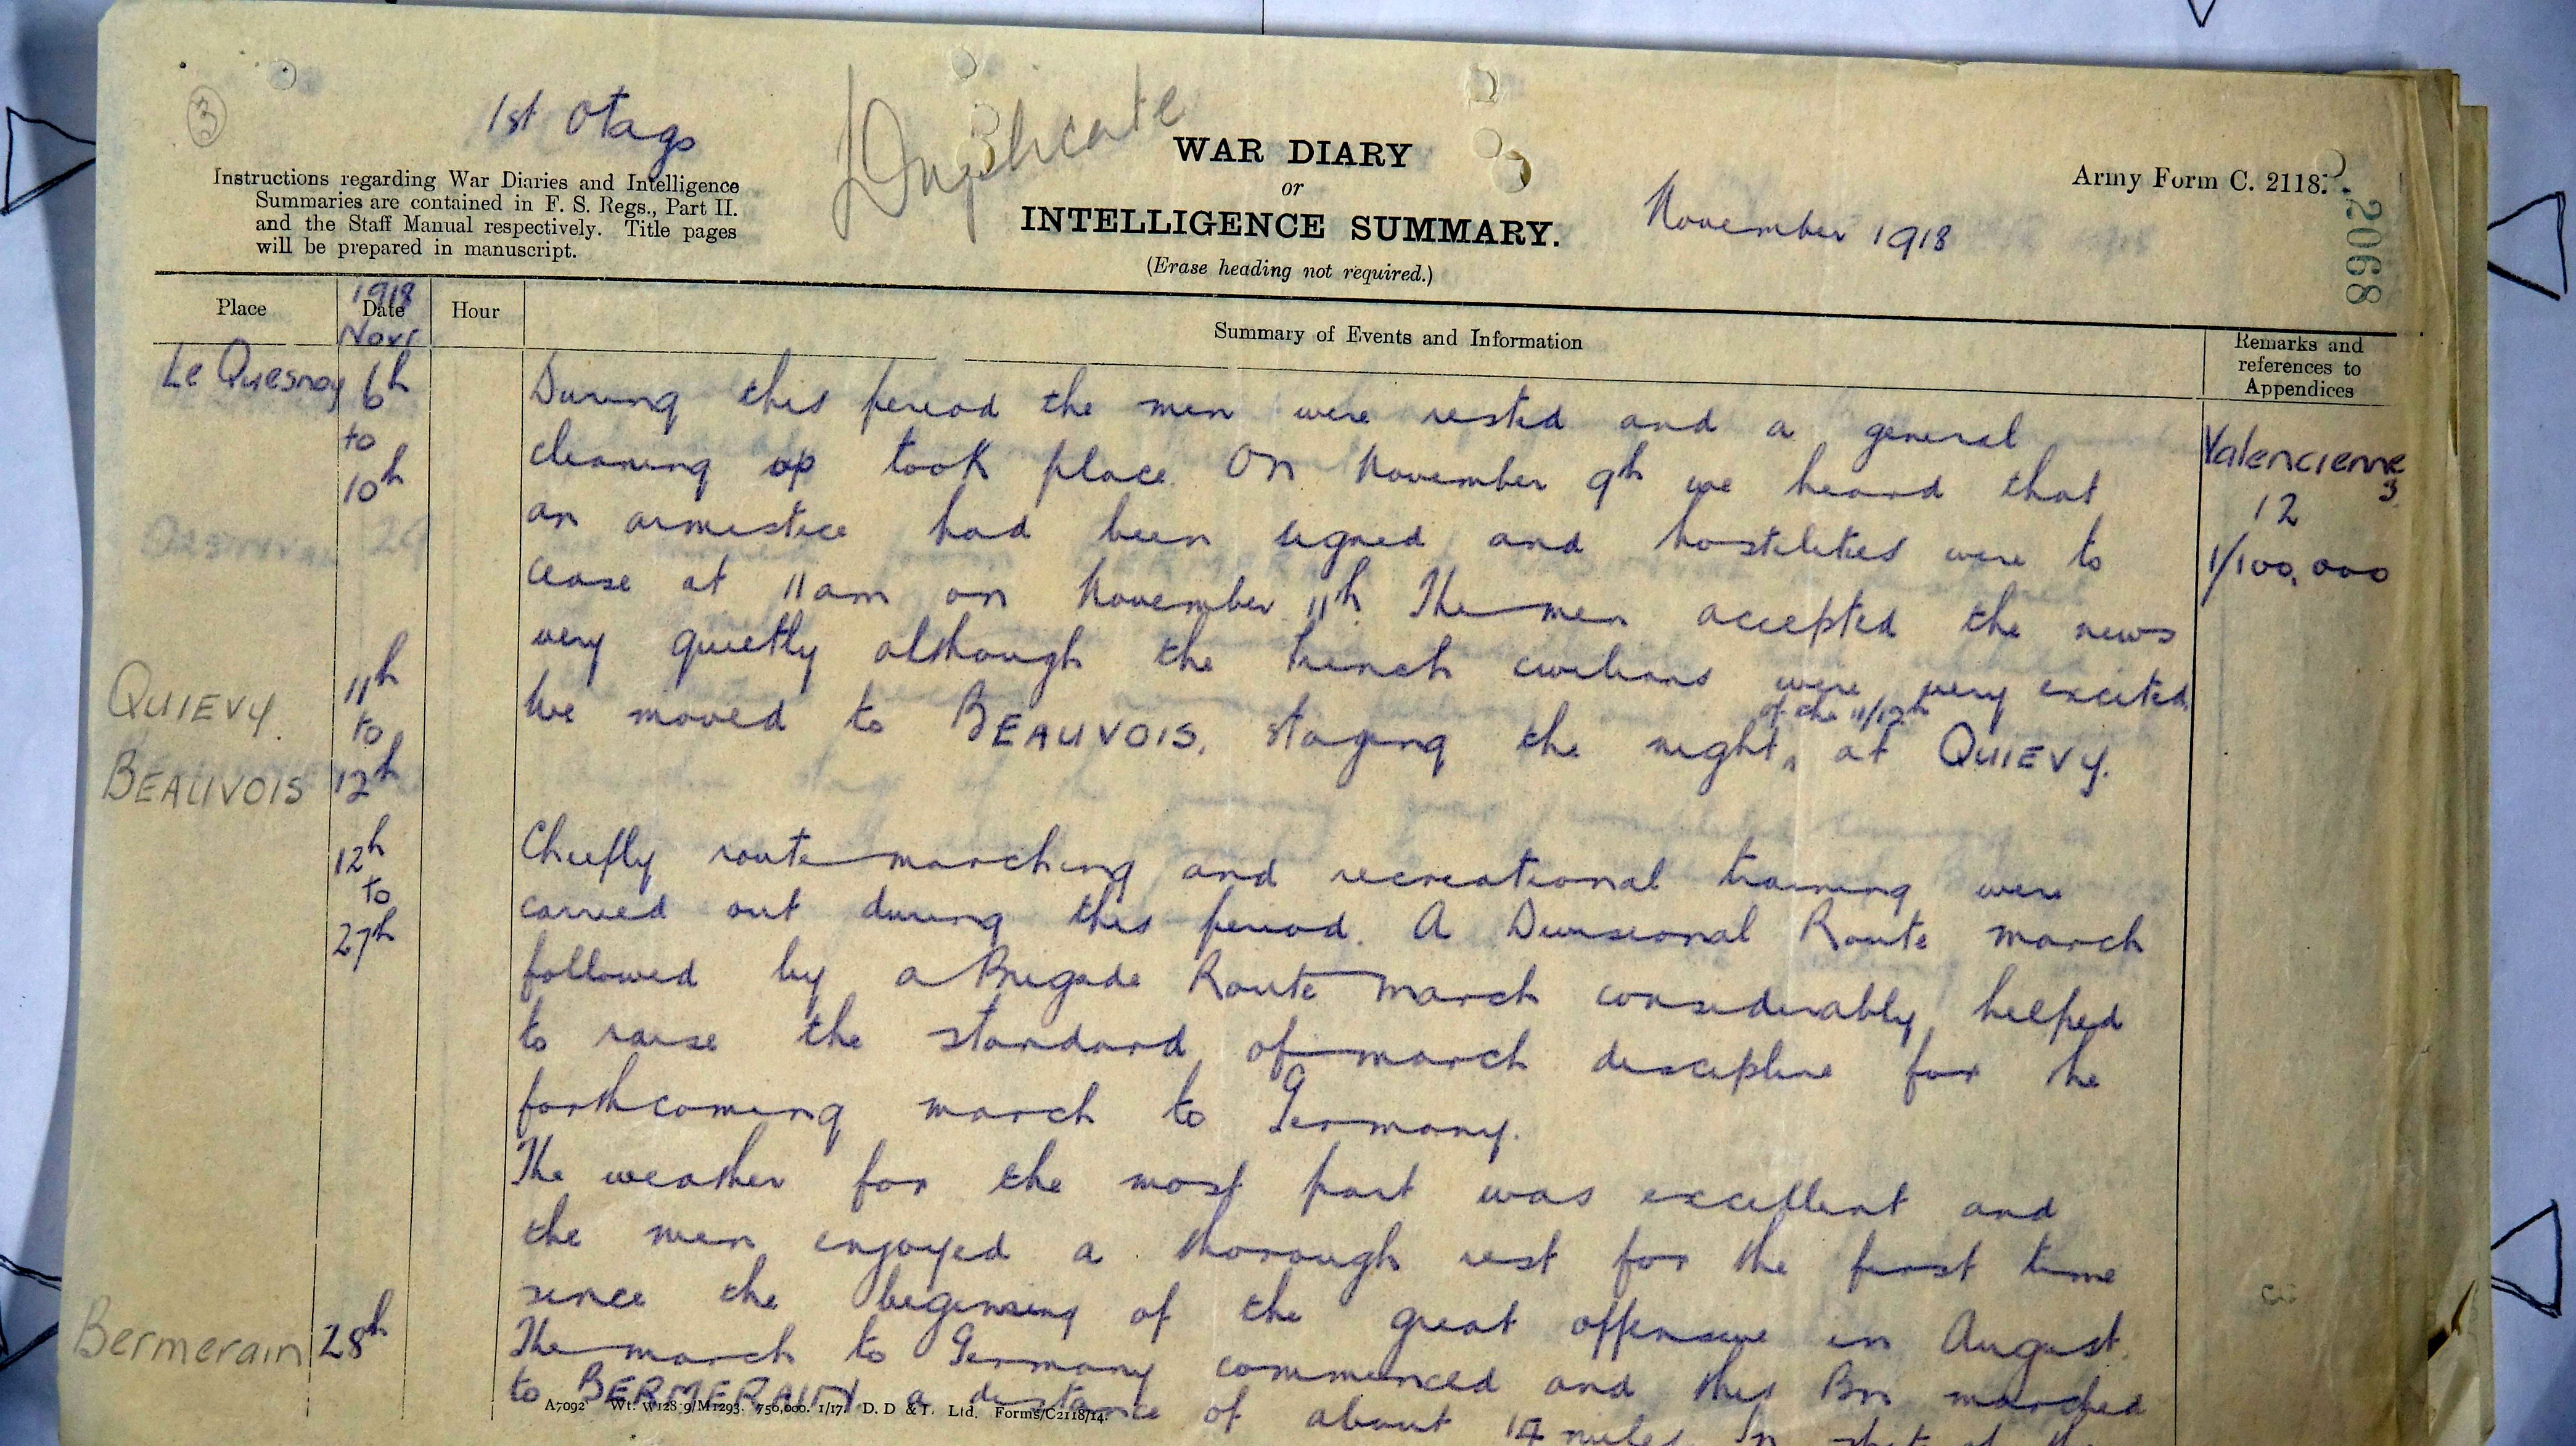 3
1st Otago
Duplicate
Instructions regarding War Diaries and Intelligence
Summaries are contained in F. S. Regs., Part II.
and the Staff Manual respectively. Title pages
will be prepared in manuscript.
WAR DIARY
or
INTELLIGENCE SUMMARY.
(Erase heading not required.)
November 1918
Army Form C. 2118.
2068
Place
1918
Date
Novr
Hour
Summary of Events and Information
Remarks and
references to
Appendices
Le Quesnoy 6th During this period the men were rested and a general
to
10th cleaning up took place. On November 9th we heard that
an armistice had been signed and hostilities were to
cease at 11am on November 11th. The men accepted the news
very quietly although the French civilians were very excited
Valenciennes
12
1/100,000
QUIEVY. 11th We moved to BEAUVOIS, staying the night of the 11/12th at QUIEVY.
to
BEAUVOIS 12th
12th Chiefly route marching and recreational training were
to
27th carried out during this period. A Divisional Route march
followed by a Brigade Route march considerably helped
to raise the standard of march discipline for the
forthcoming march to Germany.
The weather for the most part was excellent and
the men enjoyed a thorough rest for the first time
since the beginning of the great offensive in August.
Bermerain 28th The march to Germany commenced and this Bn marched
to BERMERAIN a distance of about 14 miles. In spite of the
A7092 Wt. W128 9/M1293. 750,000. 1/17. D. D & L. Ltd. Forms/C2118/14.